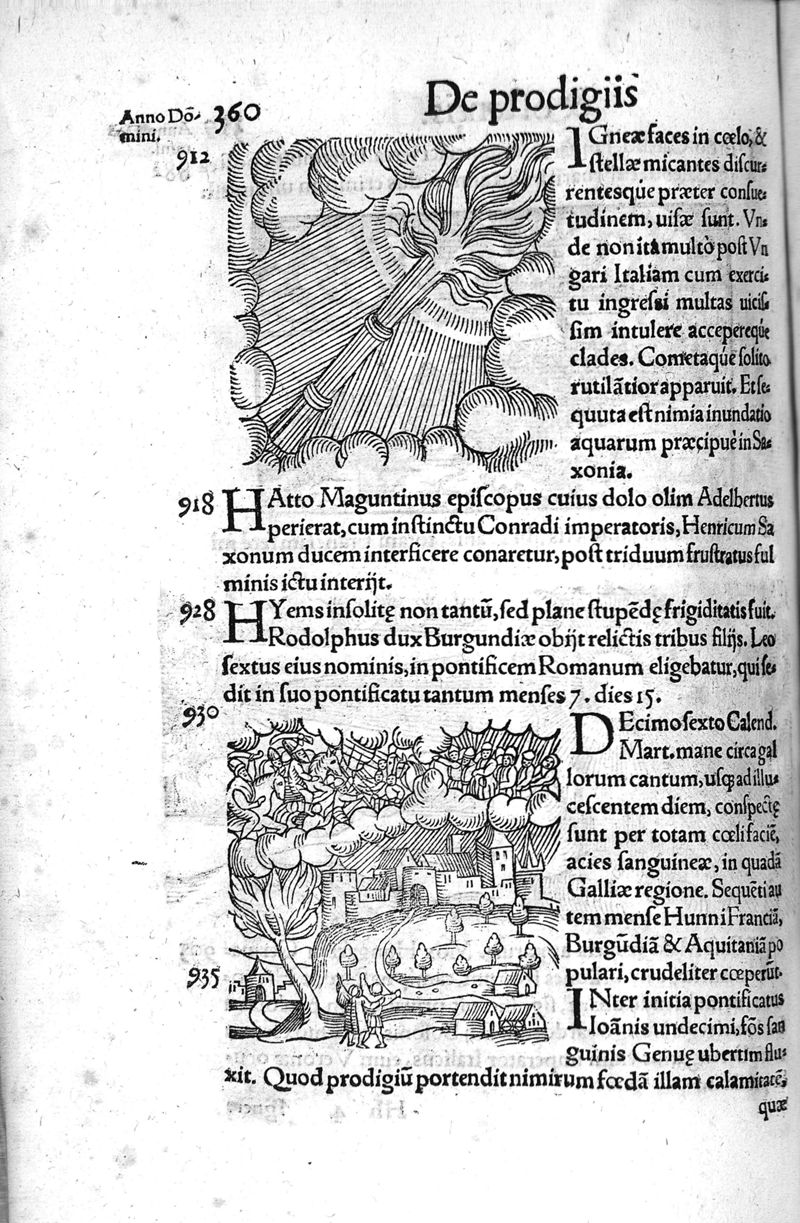 De prodigiis
Anno Dō- 360
mini.
912
IGneæ faces in cœlo, &
stellæ micantes discur-
rentesq́ue præter consue-
tudinem, uisæ sunt. Vn-
de non ita multò post Vn
gari Italiam cum exerci-
tu ingressi multas uicis-
sim intulere accepereq́ue
clades. Cometaq́ue solito
rutilātior apparuit. Et se-
quuta est nimia inundatio
aquarum præcipuè in Sa-
xonia.
918 HAtto Maguntinus episcopus cuius dolo olim Adelbertus
perierat, cum instinctu Conradi imperatoris, Henricum Sa
xonum ducem interficere conaretur, post triduum frustratus ful
minis ictu interijt.
928 HYems insolitę non tantū, sed plane stupēdę frigiditatis fuit.
Rodolphus dux Burgundiæ obijt relictis tribus filijs. Leo
sextus eius nominis, in pontificem Romanum eligebatur, qui se-
dit in suo pontificatu tantum menses 7. dies 15.
930
DEcimosexto Calend.
Mart. mane circa gal
lorum cantum, usq; ad illu-
cescentem diem, conspectę
sunt per totam cœli faciē,
acies sanguineæ, in quadā
Galliæ regione. Sequēti au
tem mense Hunni Franciā,
Burgūdiā & Aquitaniā po
pulari, crudeliter cœperūt.
935
INter initia pontificatus
Ioānis undecimi, fōs san
guinis Genuę ubertim flu-
xit. Quod prodigiū portendit nimirum fœdā illam calamitatē,
quæ